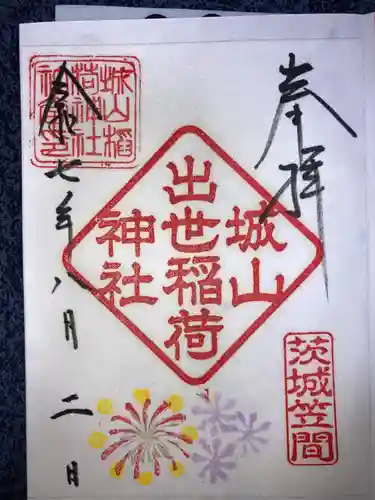 奉拝
城山
出世稲荷
神社
茨城笠間
城山稻
荷神社
令和七年八月二日